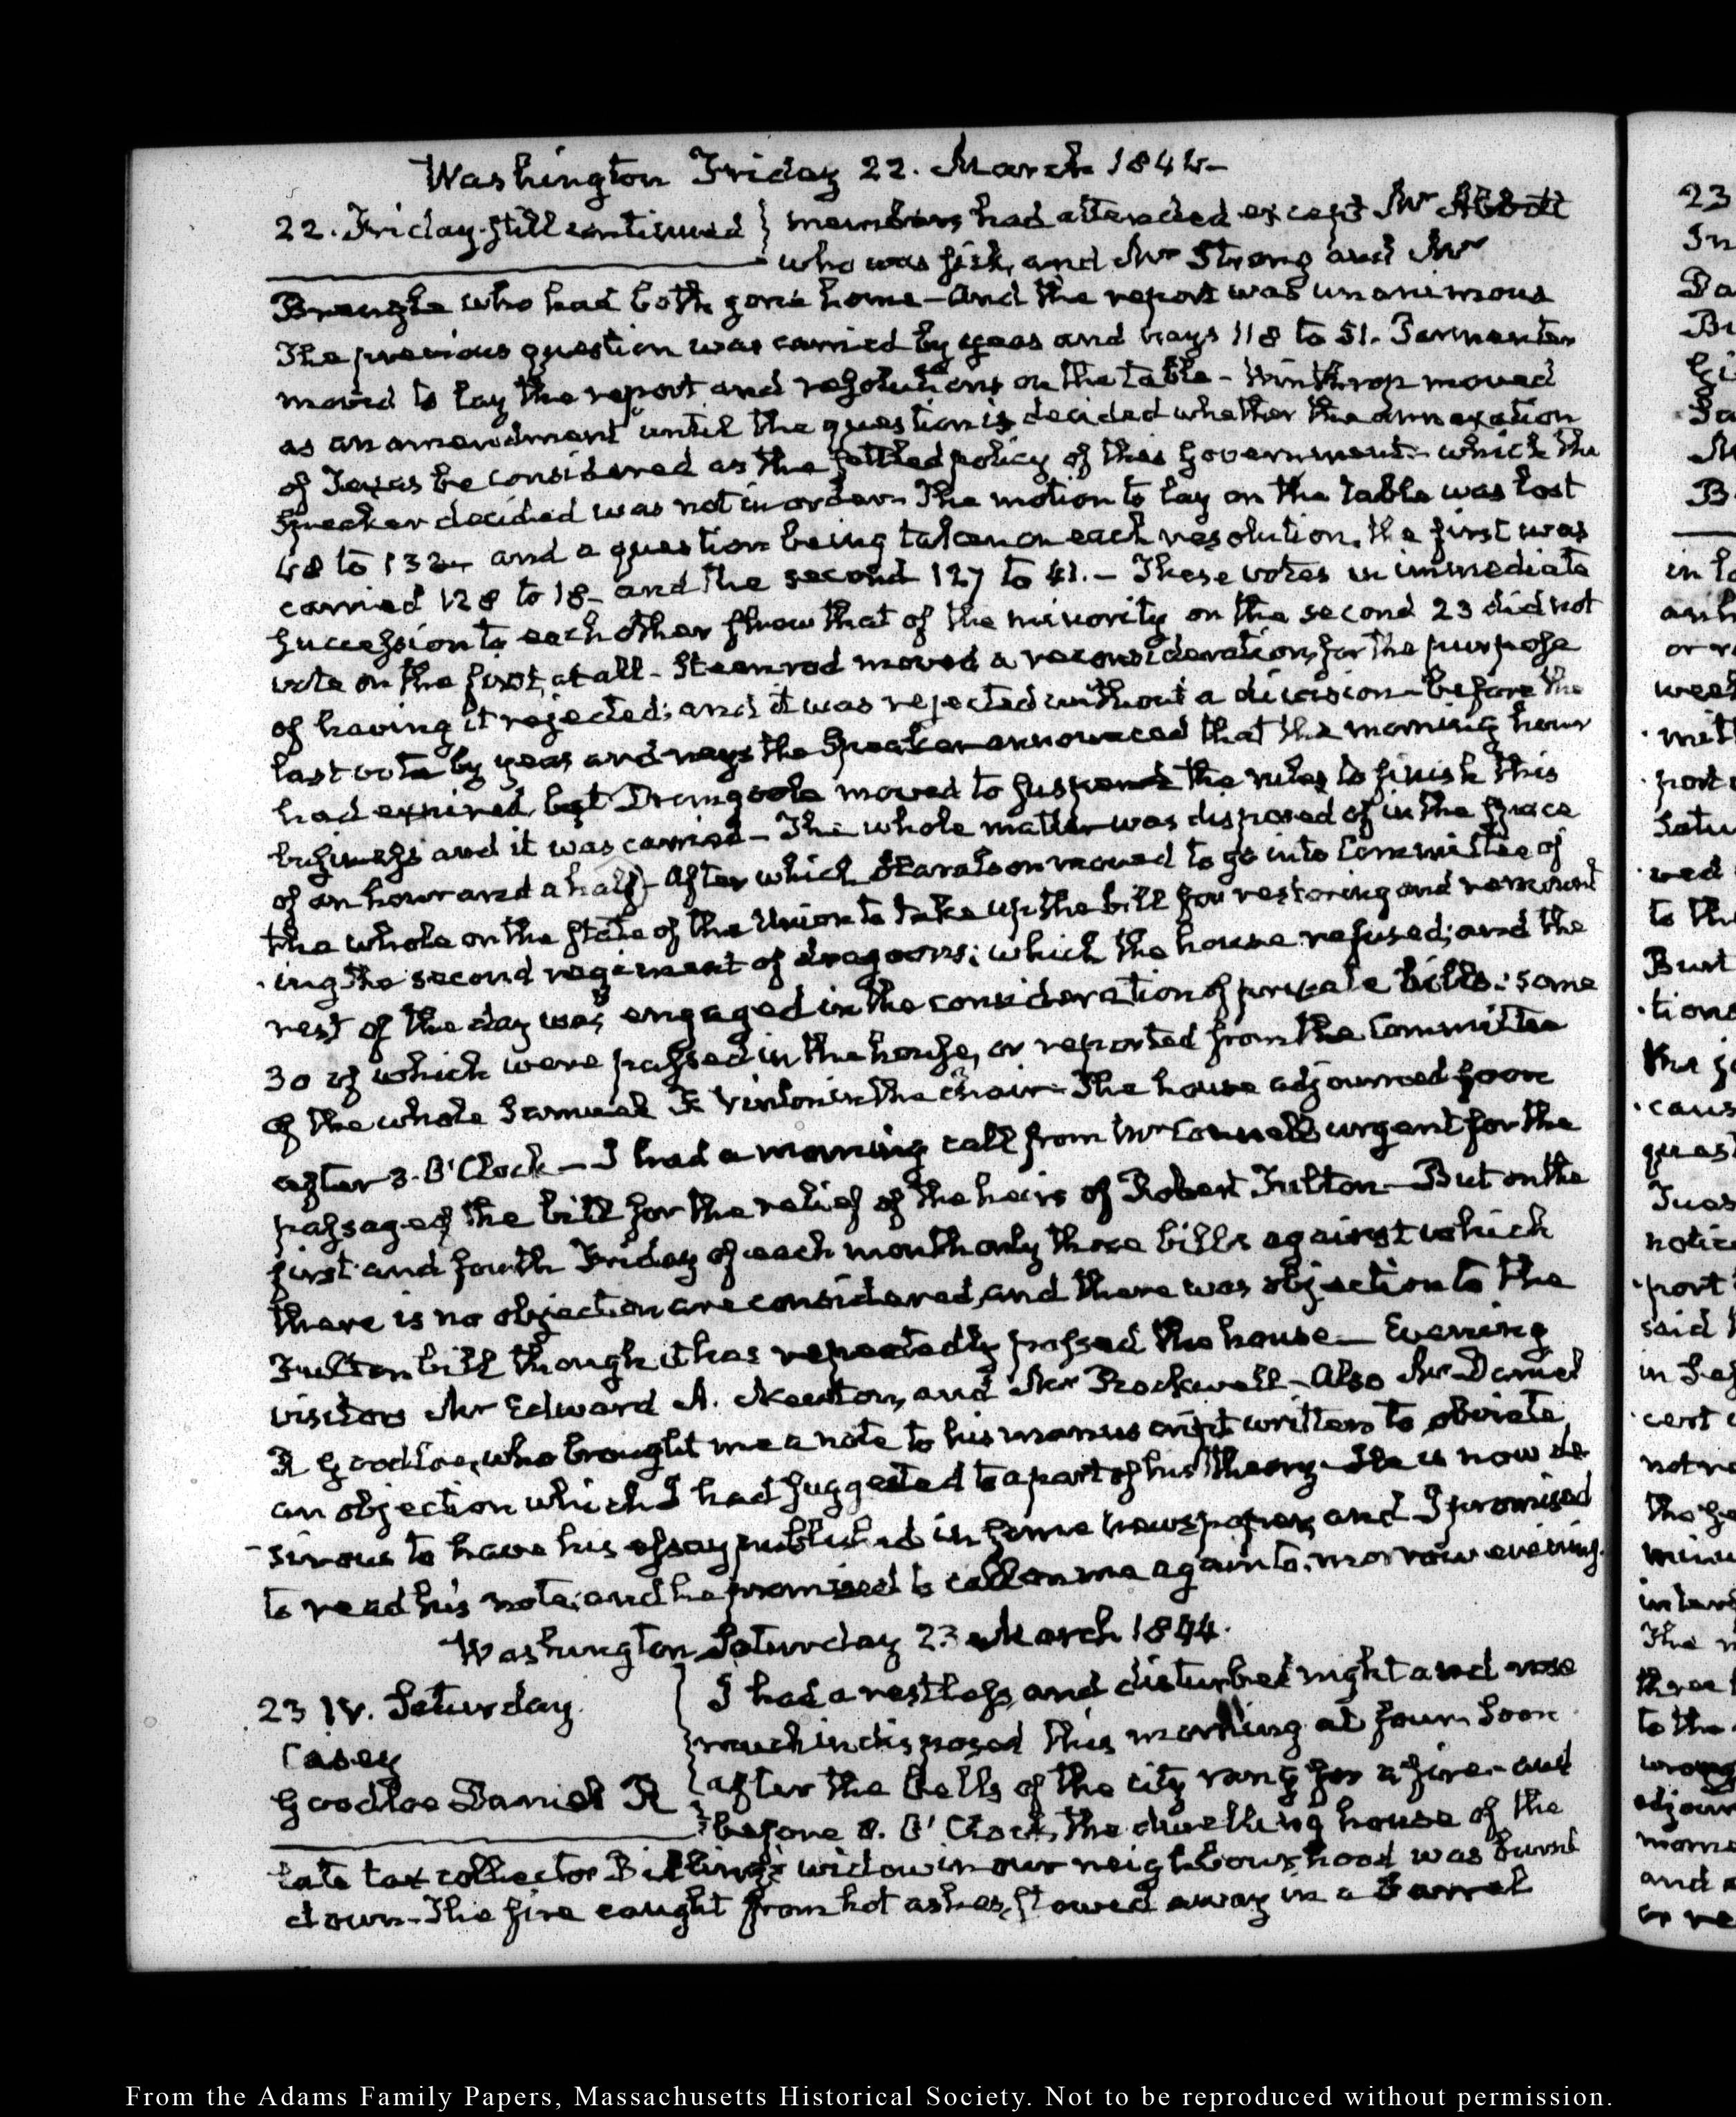 Washington Friday 22. March 1844-
22. Friday. still continued } members had attended except Mr Abbott
who was sick, and Mr Strong and Mr
Brengle who had both gone home - And the report was unanimous
The previous question was carried by yeas and nays 118 to 51. Parmenter
moved to lay the report and resolutions on the table - Winthrop moved
as an amendment until the question is decided whether the annexation
of Texas be considered as the settled policy of this Government - which the
Speaker decided was not in order - The motion to lay on the table was lost
48 to 132 - and a question being taken on each resolution, the first was
carried 128 to 18 - and the second 127 to 41. - These votes in immediate
succession to each other shew that of the minority on the second 23 did not
vote on the first, at all - Steenrod moved a reconsideration, for the purpose
of having it rejected; and it was rejected without a division - before the
last vote by yeas and nays the Speaker announced that the morning hour
had expired, but Dromgoole moved to suspend the rules to finish this
business and it was carried - The whole matter was disposed of in the space
of an hour and a half - After which Haralson moved to go into Committee of
the whole on the state of the Union to take up the bill for restoring and remount
-ing the second regiment of dragoons; which the house refused; and the
rest of the day was engaged in the consideration of private bills: some
30 of which were passed in the house, or reported from the Committee
of the whole Samuel F. Vinton in the Chair - The house adjourned soon
after 3. O'Clock - I had a morning call from Mr Connell urgent for the
passage of the bill for the relief of the heirs of Robert Fulton - But on the
first and fourth Friday of each month only those bills against which
there is no objection are considered, and there was objection to the
Fulton bill though it has repeatedly passed the house - Evening
visitors Mr Edward A. Newton, and Mr Rockwell - Also Mr Daniel
R Goodloe, who brought me a note to his manuscript written to obviate
an objection which I had suggested to a part of his theory - He is now de
-sirous to have his essay published in some newspaper, and I promised
to read his note; and he promised to call on me again to-morrow evening.
Washington Saturday 23 March 1844.
23 IV. Saturday.
Casey
Goodloe Daniel R
I had a restless, and disturbed night and rose
much indisposed this morning at four. Soon
after the bells of the city rang for a fire - and
before 8. O'Clock, the dwelling house of the
late tax collector Billing's widow in our neighbourhood was burnt
down - The fire caught from hot ashes, stowed away in a barrel
From the Adams Family Papers, Massachusetts Historical Society. Not to be reproduced without permission.